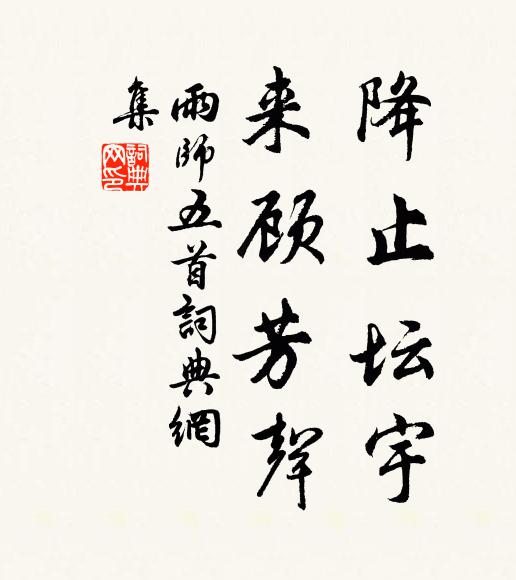 降止坛宇
来顾芳聲
雨師五首詞典網
集
詞典
网印